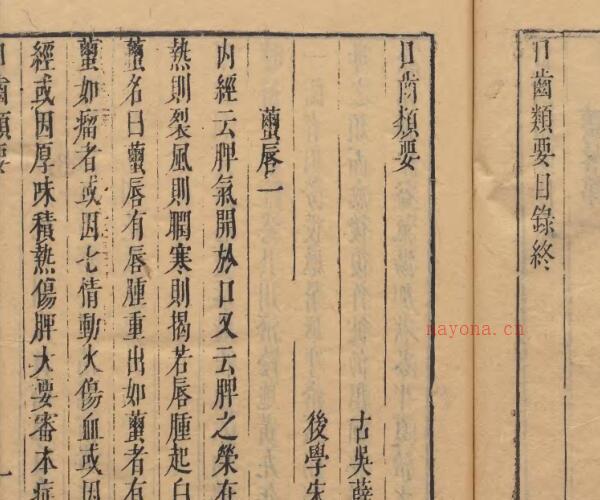 口齒類要目錄終
口齒類要
古吳薛
後學朱
繭唇一
內經云脾氣開於口又云脾之榮在
熱則裂風則瞤寒則揭若唇腫起白
繭名曰繭唇有唇腫重出如繭者有
繭如瘤者或因七情動火傷血或因
經或因厚味積熱傷脾大要審本症
口齒類要
一
nayona.cn